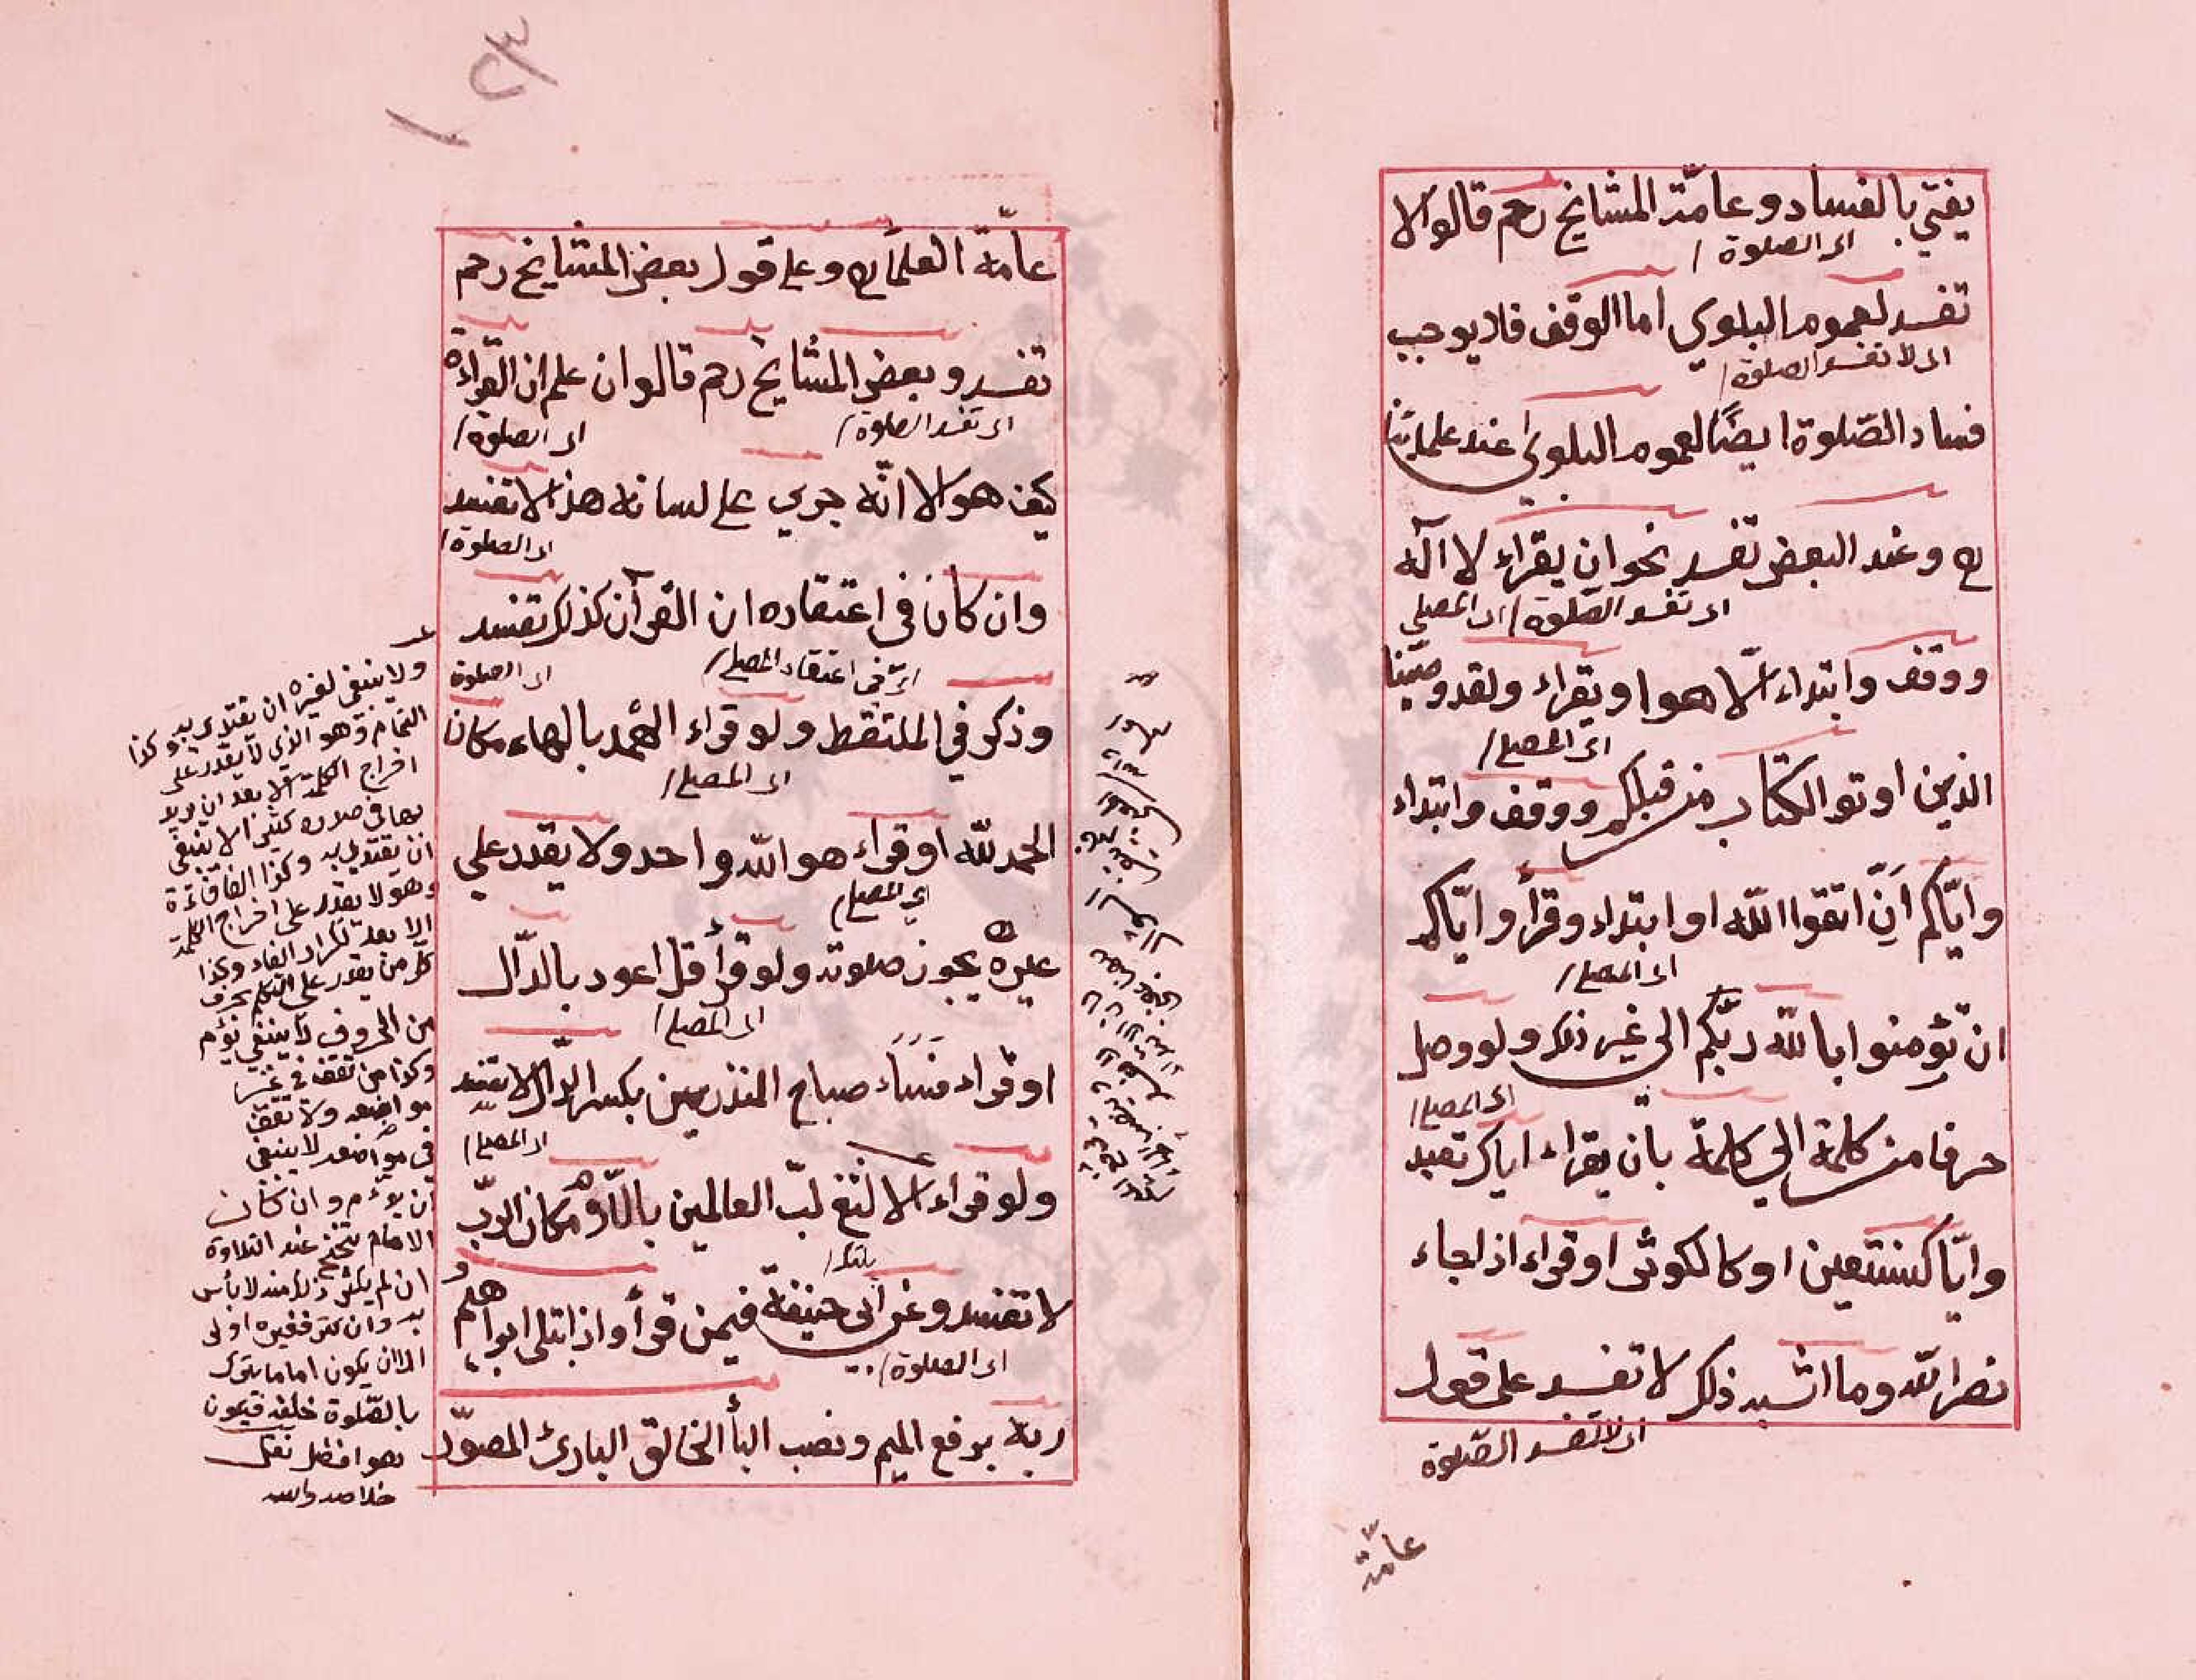 يفتي بالفساد وعامّة المشايخ رحم قالوا لا
اى الصلوة
تفسد لعموم البلوي اما الوقف فلا يوجب
اى لا تفسد الصلوة
فساد الصّلوة ايضًا لعموم البلوى عند علمائنا
رح وعند البعض تفسد نحو ان يقراء لا اله
اى تفسد الصّلوة اى المصلي
ووقف وابتداء الّا هو او يقراء ولقد وصّينا
اى المصلى
الذين اوتو الكتاب من قبلكم ووقف وابتداء
وايّاكم انّ اتقوا اللّه او ابتداء وقرأ وايّاكم
اى المصلى
ان تؤمنوا باللّه ربّكم الى غير ذلك ولو وصل
اى المصلى
حرفا من كلمة الي كلمة بان يقراء اياك نعبد
وايّا كنستعين او كا لكوثر او قراء اذا جاء
نصرا للّه وما اشبه ذلك لا تفسد على قول
اى لا تفسد الصّلوة
عامّة
عامّة العلماء رح وعلى قول بعض المشايخ رحم
تفسد وبعض المشايخ رحم قالوا ان علم ان القراءة
اى تفسد الصلوة
اى الصلوة
كيف هو الا انّه جري على لسانه هذا لا تفسد
اى الصلوة
وان كان في اعتقاده ان القرآن كذلك تفسد
اى في اعتقاد المصلى
اى الصلوة
وذكر في الملتقط ولو قراء الهمد بالهاء مكان
اى المصلى
الحمد للّه او قراء هو اللّه واحد ولا يقدر علي
اى المصلى
غيره يجوز صلوته ولو قرأ قل اعود بالدّال
اى المصلى
او قراء فساء صباح المنذرين بكسر الذّال لا تفسد
اى المصلى
ولو قراء الالثغ لبّ العالمين باللّام مكان الربّ
لا تفسد وعن ابى حنيفة فيمن قرأ واذ ابتلى ابراهيم
اى الصلوة
ربه برفع الميم ونصب البأ الخالق البارئ المصوّر
ولا ينبغي لغيره ان يقتدى به وكذا
التمتام وهو الذي لا يقدر على
اخراج الكلمة الا بعد ان يدير
بها في صدره كثيرا لا ينبغي
ان يقتدى به وكذا الفأفأة
وهو لا يقدر على اخراج الكلمة
الا بعد تكرار الفاء وكذا
كل من يقدر على التكلم بحرف
من الحروف لا ينبغي يؤم
وكذا من تقف في غير
مواضعه ولا تقف
في مواضعه لا ينبغي
ان يؤم وان كان
الامام يتنحنح عند التلاوة
ان لم يكثر ذلك منه لا بأس
به وان كثر فغيره اولى
الا ان يكون اماما يتبرك
بالصّلوة خلفه فيكون
هو افضل
خلاصه